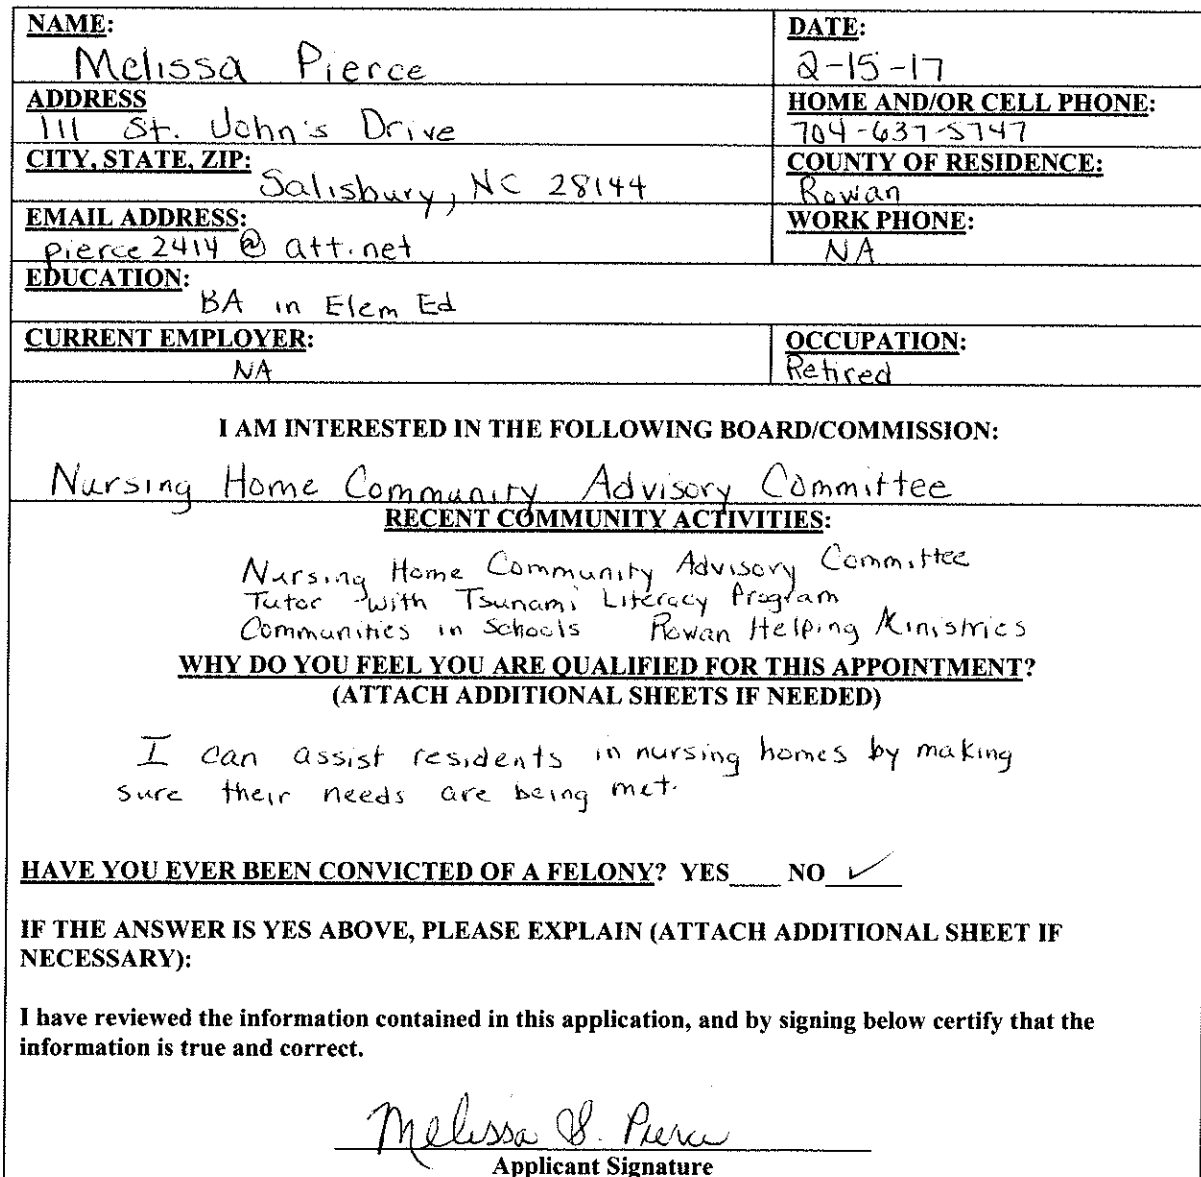 NAME: DATE:
Melissa Pierce 2-15-17
ADDRESS HOME AND/OR CELL PHONE:
111 St. John's Drive 704-637-5747
CITY, STATE, ZIP: COUNTY OF RESIDENCE:
Salisbury, NC 28144 Rowan
EMAIL ADDRESS: WORK PHONE:
pierce2414@att.net NA
EDUCATION:
BA in Elem Ed
CURRENT EMPLOYER: OCCUPATION:
NA Retired
I AM INTERESTED IN THE FOLLOWING BOARD/COMMISSION:
Nursing Home Community Advisory Committee
RECENT COMMUNITY ACTIVITIES:
Nursing Home Community Advisory Committee
Tutor with Tsunami Literacy Program
Communities in Schools Rowan Helping Ministries
WHY DO YOU FEEL YOU ARE QUALIFIED FOR THIS APPOINTMENT?
(ATTACH ADDITIONAL SHEETS IF NEEDED)
I can assist residents in nursing homes by making
sure their needs are being met.
HAVE YOU EVER BEEN CONVICTED OF A FELONY? YES____ NO ✓
IF THE ANSWER IS YES ABOVE, PLEASE EXPLAIN (ATTACH ADDITIONAL SHEET IF
NECESSARY):
I have reviewed the information contained in this application, and by signing below certify that the
information is true and correct.
Melissa S. Pierce
Applicant Signature